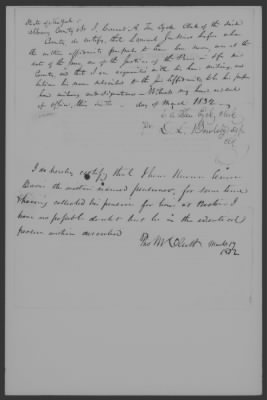 State of New York
Albany County ss. I, Conrad A. Ten Eyck Clerk of the said
County, do certify, that Lemuel Jenkins before whom
the within affidavit purports to have been sworn, was at the
date of the same, one of the Justices of the Peace in & for said
County, and that I am acquainted with his hand writing, and
believe his name subscribed to the affidavit to be his proper
hand writing and signature. Witness my hand and seal
of office, this day of March 1832.
C. A. Ten Eyck, Clerk
I do hereby certify that I have known
Bacon the within named pensioner, for some time
having collected his pension for him at Boston. I
have no possible doubt but he is the identical
person within described
March 17
1832